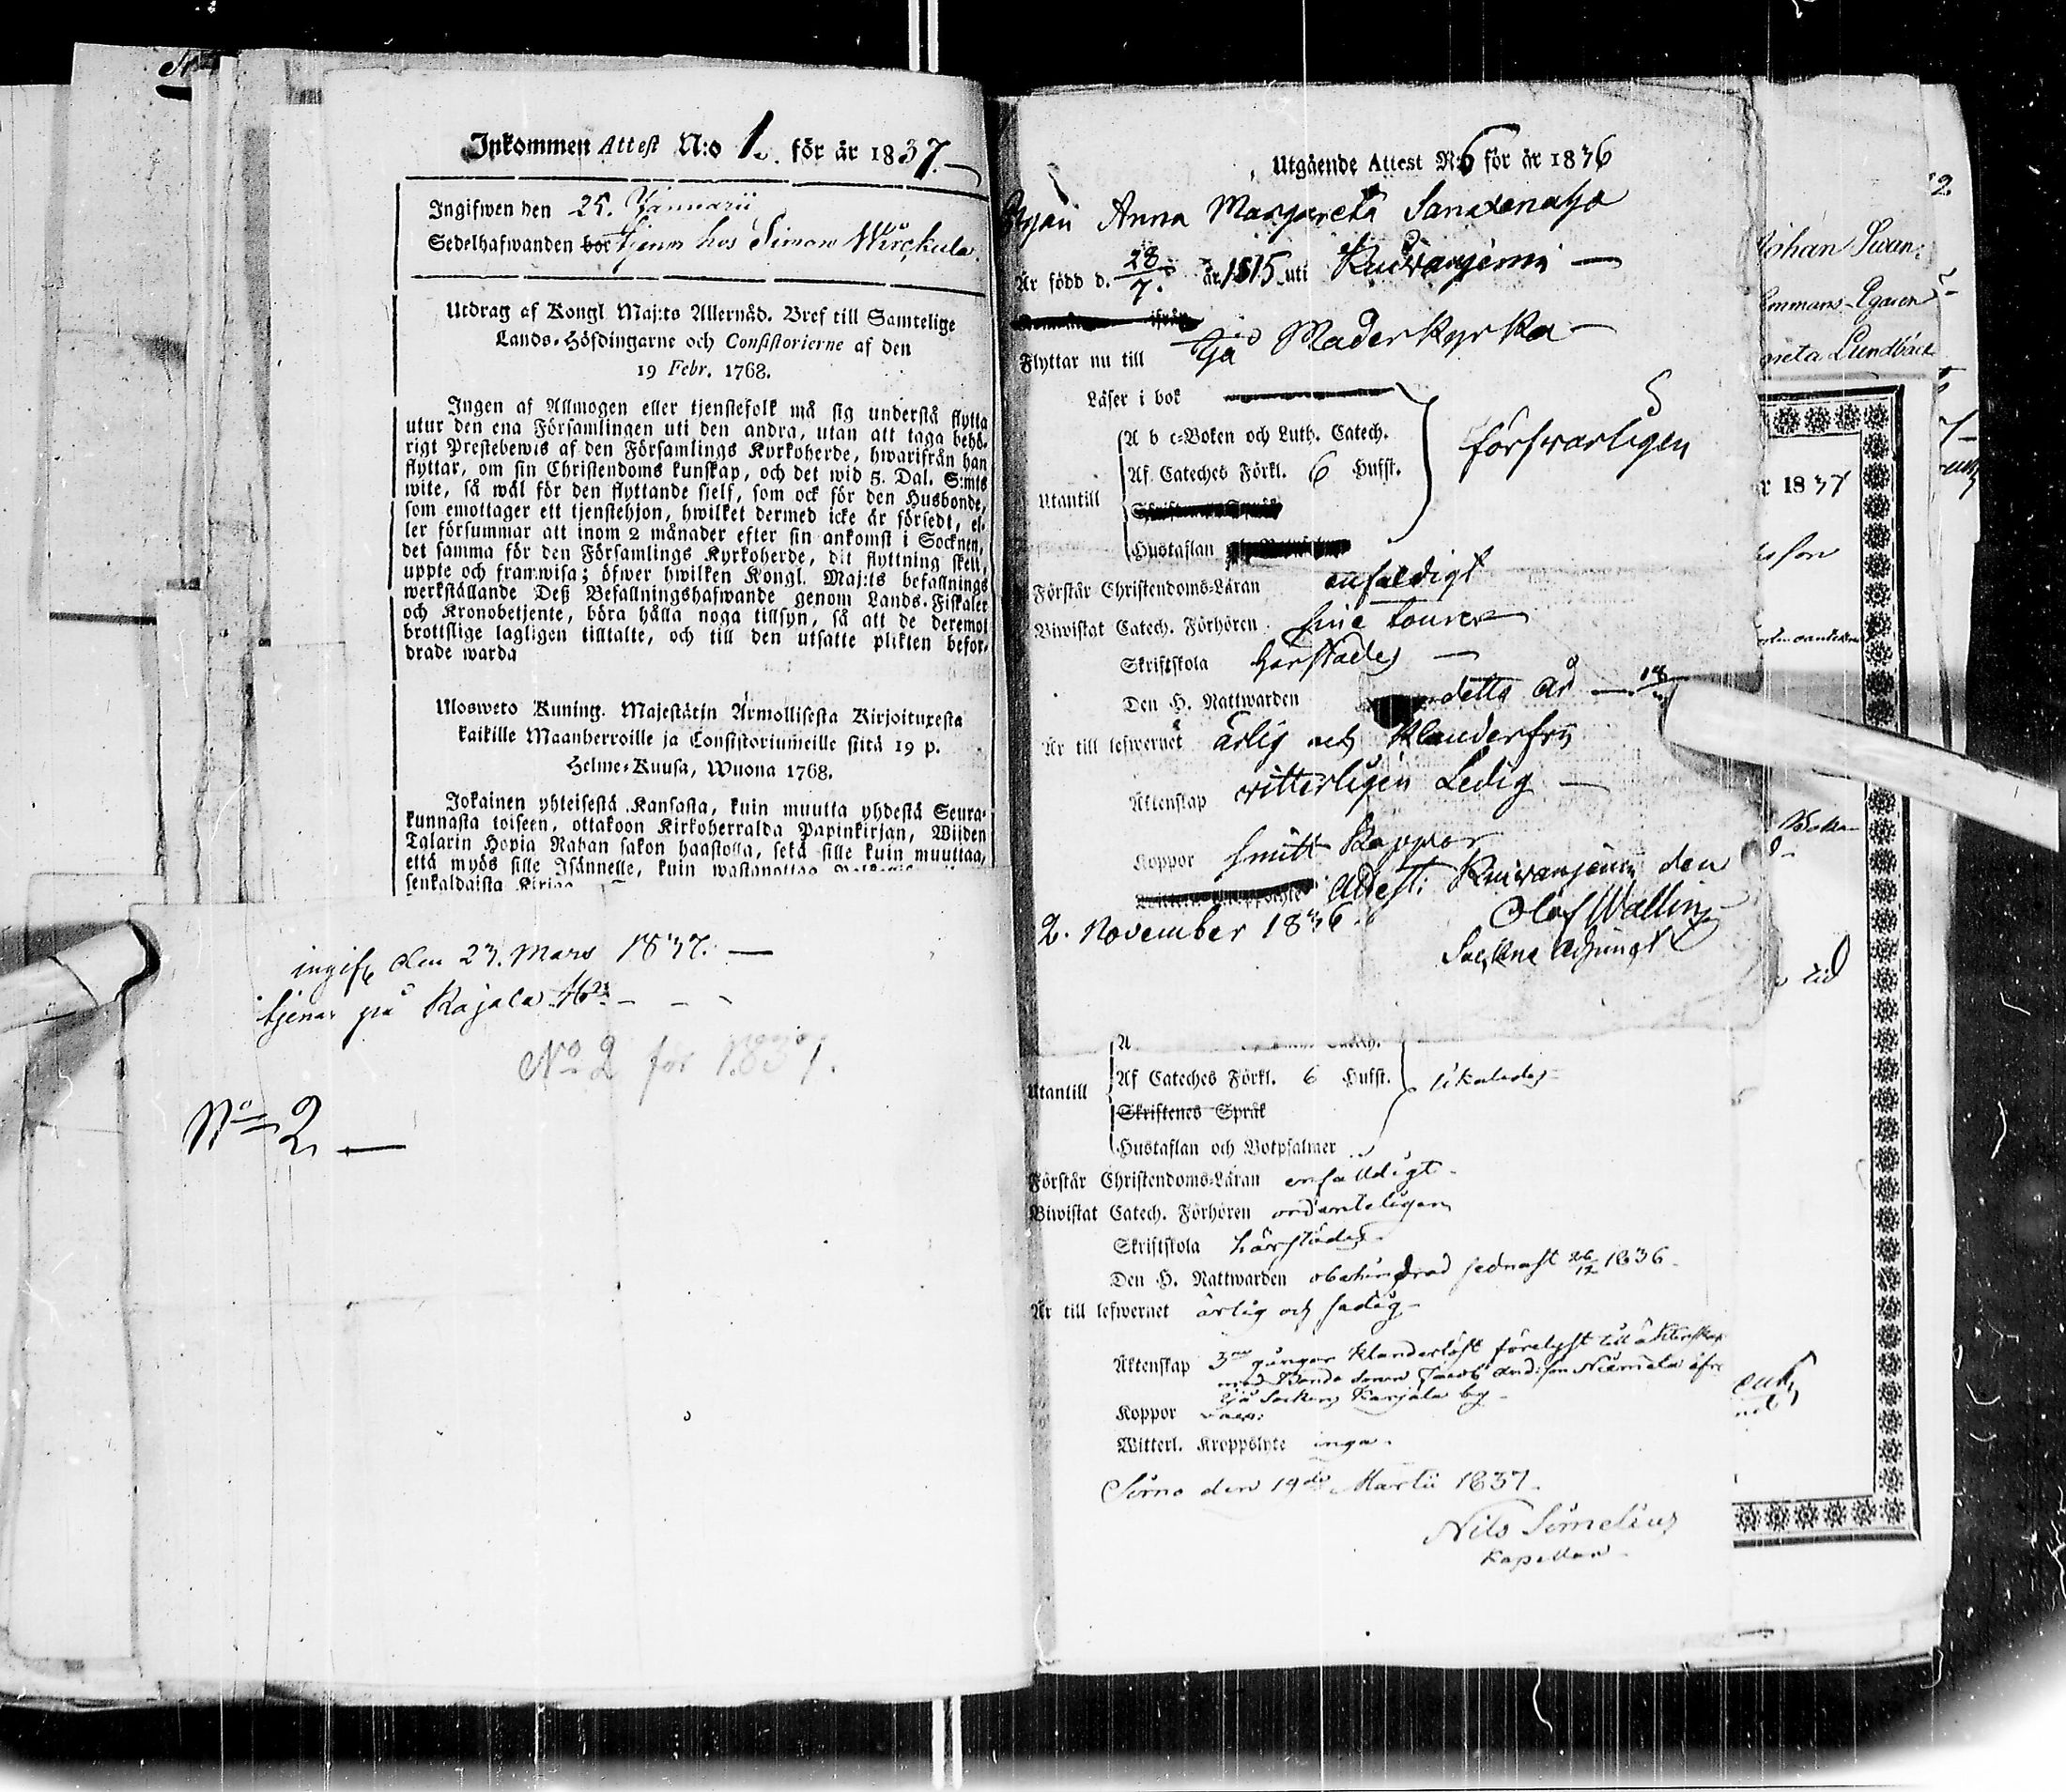 Inkommen Attest N:o 1. för år 1837.
Ingifwen den 25. Januarii
Sedelhafwanden bor tjenar hos Simon
Utdrag af Kongl Maj:ts Allernåd. Bref till Samtelige
Lands-Höfdingarne och Consistorierne af den
19 Febr. 1768.
Ingen af Allmogen eller tjenstefolk må sig understå flytta
utur den ena Församlingen uti den andra, utan att taga behö-
rigt Prestebewis af den Församlings Kyrkoherde, hwarifrån han
flyttar, om sin Christendoms kunskap, och det wid 5. Dal. S:mts
wite, så wäl för den flyttande sielf, som ock för den Husbonde,
som emottager ett tjenstehjon, hwilket dermed icke är försedt, el-
ler försummar att inom 2 månader efter sin ankomst i Socknen,
det samma för den Församlings Kyrkoherde, dit flyttning skett,
uppte och framwisa; öfwer hwilken Kongl. Maj:ts befallnings
werkställande Deß Befallningshafwande genom Lands-Fiskaler
och Kronobetjente, böra hålla noga tillsyn, så att de deremot
brottslige lagligen tilltalte, och till den utsatte plikten befor-
drade warda
Ulosweto Kuning. Majestätin Armollisesta Kirjoituxesta
kaikille Maanherroille ja Consistoriumeille siitä 19 p.
Helme-Kuusa, Wuona 1768.
Jokainen yhteisestä Kansasta, kuin muutta yhdestä Seura-
kunnasta toiseen, ottakoon Kirkoherralda Papinkirjan, Wiiden
Talarin Hopia Rahan sakon haastolla, sekä sille kuin muuttaa,
että myös sille Isännelle, kuin
senkaldaista
ingifv den 23. Mars 1837.
tjenar på Kajala
No 2 för 1837.
No 2
Utgående Attest N:6 för år 1836
Pigan Anna Margareta
Är född d. 28/7. år 1815 uti Kuivaniemi
Flyttar nu till Ijå Moderkyrka
Läser i bok
Utantill
A b c-Boken och Luth. Catech.
Af Cateches Förkl. 6 Hufst.
försvarligen
Hustaflan
Förstår Christendoms-Läran enfaldigt
Biwistat Catech. Förhören sine tourer
Skriftskola härstädes
Den H. Nattwarden detta år
Är till lefwernet ärlig och klanderfri
Äktenskap vitterligen Ledig
Koppor haft Koppor
Attest: Kuivaniemi den
2. November 1836.
Olof Wallin
Adjunct
Utantill
Af Cateches Förkl. 6 Hufst. likaledes
Skriftenes Språk
Hustaflan och Botpsalmer
Förstår Christendoms-Läran enfalldigt
Biwistat Catech. Förhören ordenteligen
Skriftskola härstädes
Den H. Nattwarden obehindrad sednast 26/12 1836
Är till lefwernet ärlig och sedig
Äktenskap 3ne gånger klanderlöst förelyst till äktenskap
med Bonde sonen Jacob Niemelä ifr.
Ijå Socken Karjala by
Koppor vacc:
Witterl. Kroppslyte inga
Simo den 19de Martii 1837.
Nils Simelius
Kapellan
Johan Swan
oreta Lundbäck
1837